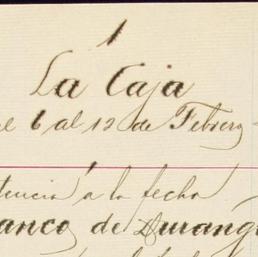 1
La Caja
el 6 al 12 de Febrero
tencia á la fecha
anco de Durang